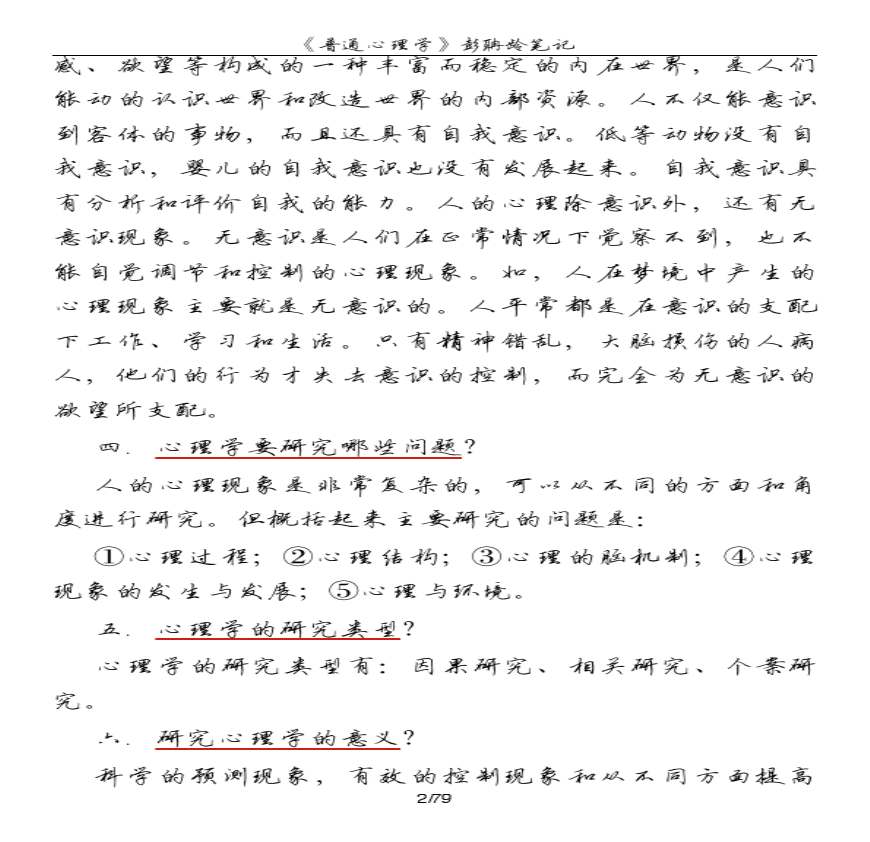 《普通心理学》彭聃龄笔记
感、欲望等构成的一种丰富而稳定的内在世界，是人们
能动的认识世界和改造世界的内部资源。人不仅能意识
到客体的事物，而且还具有自我意识。低等动物没有自
我意识，婴儿的自我意识也没有发展起来。自我意识具
有分析和评价自我的能力。人的心理除意识外，还有无
意识现象。无意识是人们在正常情况下觉察不到，也不
能自觉调节和控制的心理现象。如，人在梦境中产生的
心理现象主要就是无意识的。人平常都是在意识的支配
下工作、学习和生活。只有精神错乱，大脑损伤的人病
人，他们的行为才失去意识的控制，而完全为无意识的
欲望所支配。
四．心理学要研究哪些问题？
人的心理现象是非常复杂的，可以从不同的方面和角
度进行研究。但概括起来主要研究的问题是：
①心理过程；②心理结构；③心理的脑机制；④心理
现象的发生与发展；⑤心理与环境。
五．心理学的研究类型？
心理学的研究类型有：因果研究、相关研究、个案研
究。
六．研究心理学的意义？
科学的预测现象，有效的控制现象和从不同方面提高
2/79